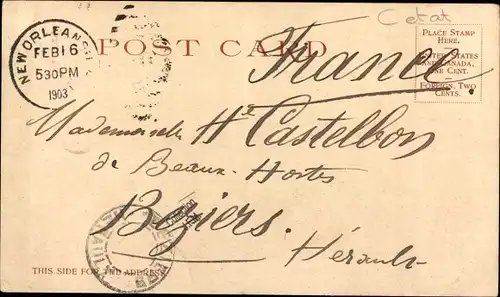 C etat
NEW ORLEANS, LA.
FEB 16
530 PM
1903
POST CARD
PLACE STAMP
HERE.
UNITED STATES
AND CANADA,
ONE CENT.
FOREIGN, TWO
CENTS.
France.
Mademoiselle He Castelbon
de Beaux-Hostes
Beziers.
Hérault
THIS SIDE FOR THE ADDRESS